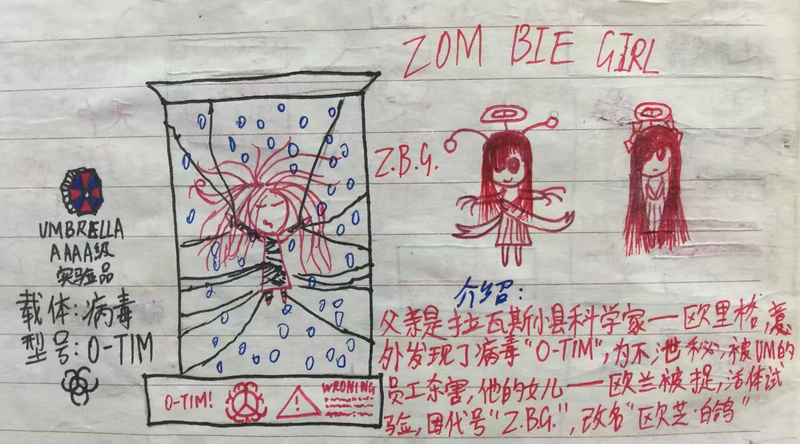 ZOM BIE GIRL
Z.B.G.
UMBRELLA
AAAA级
实验品
载体:病毒
型号:O-TIM
O-TIM!
WRONING
介绍:
父亲是拉瓦斯小县科学家—欧里格,意
外发现了病毒“O-TIM”,为不泄秘,被UM的
员工杀害,他的女儿——欧兰被捉,活体试
验,因代号“Z.B.G.”,改名“欧芝·白鸽”